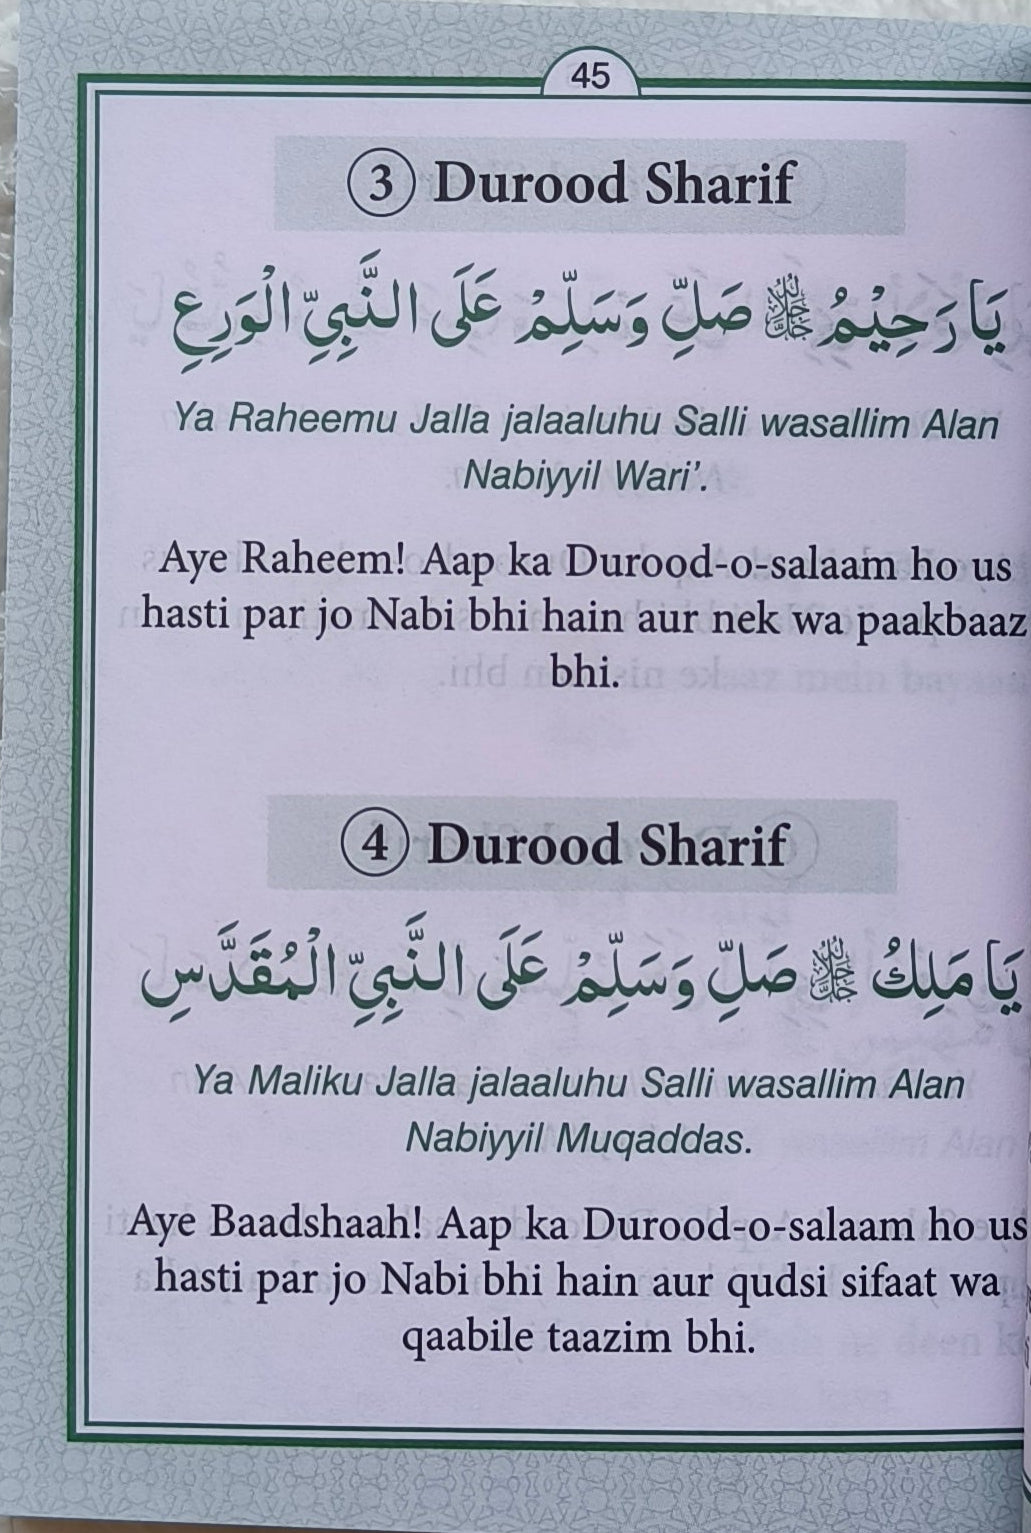 45
③ Durood Sharif
يَا رَحِيْمُ ﷻ صَلِّ وَسَلِّمْ عَلَى النَّبِيِّ الْوَرِعِ
Ya Raheemu Jalla jalaaluhu Salli wasallim Alan
Nabiyyil Wari'.
Aye Raheem! Aap ka Durood-o-salaam ho us
hasti par jo Nabi bhi hain aur nek wa paakbaaz
bhi.
④ Durood Sharif
يَا مَلِكُ ﷻ صَلِّ وَسَلِّمْ عَلَى النَّبِيِّ الْمُقَدَّسِ
Ya Maliku Jalla jalaaluhu Salli wasallim Alan
Nabiyyil Muqaddas.
Aye Baadshaah! Aap ka Durood-o-salaam ho us
hasti par jo Nabi bhi hain aur qudsi sifaat wa
qaabile taazim bhi.